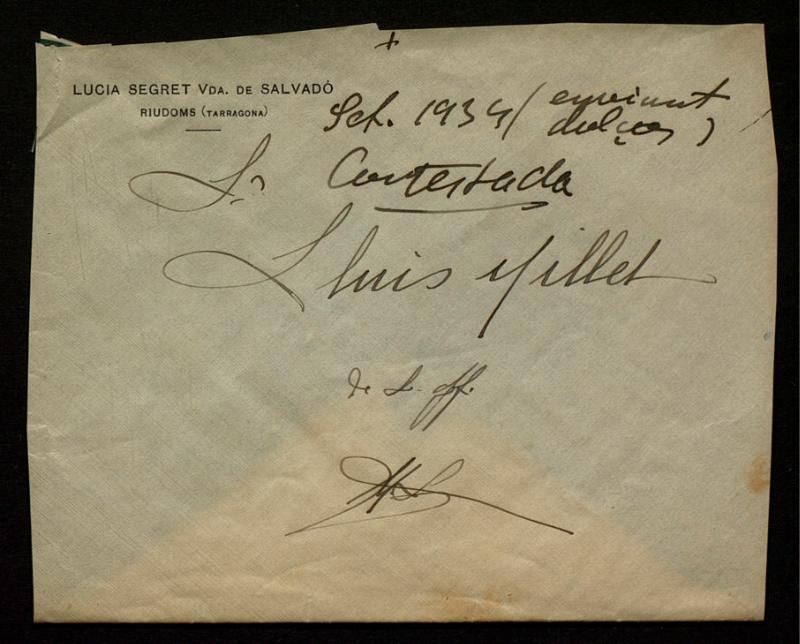 LUCIA SEGRET VDA. DE SALVADÓ
RIUDOMS (TARRAGONA)
Set. 1934 (enviant
dolços)
Contestada
Sr.
Lluis Millet
de S. aff.